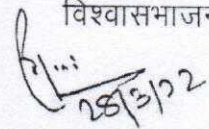 विश्वासभाजन
28/3/22